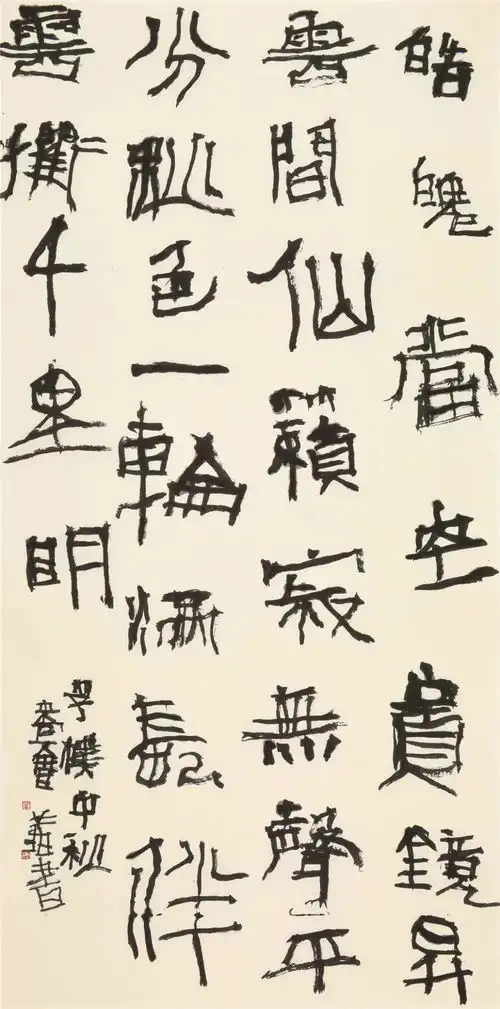 皓魄當空寶鏡昇
雲間仙籟寂無聲平
分秋色一輪滿長伴
雲衢千里明
李樸中秋
書